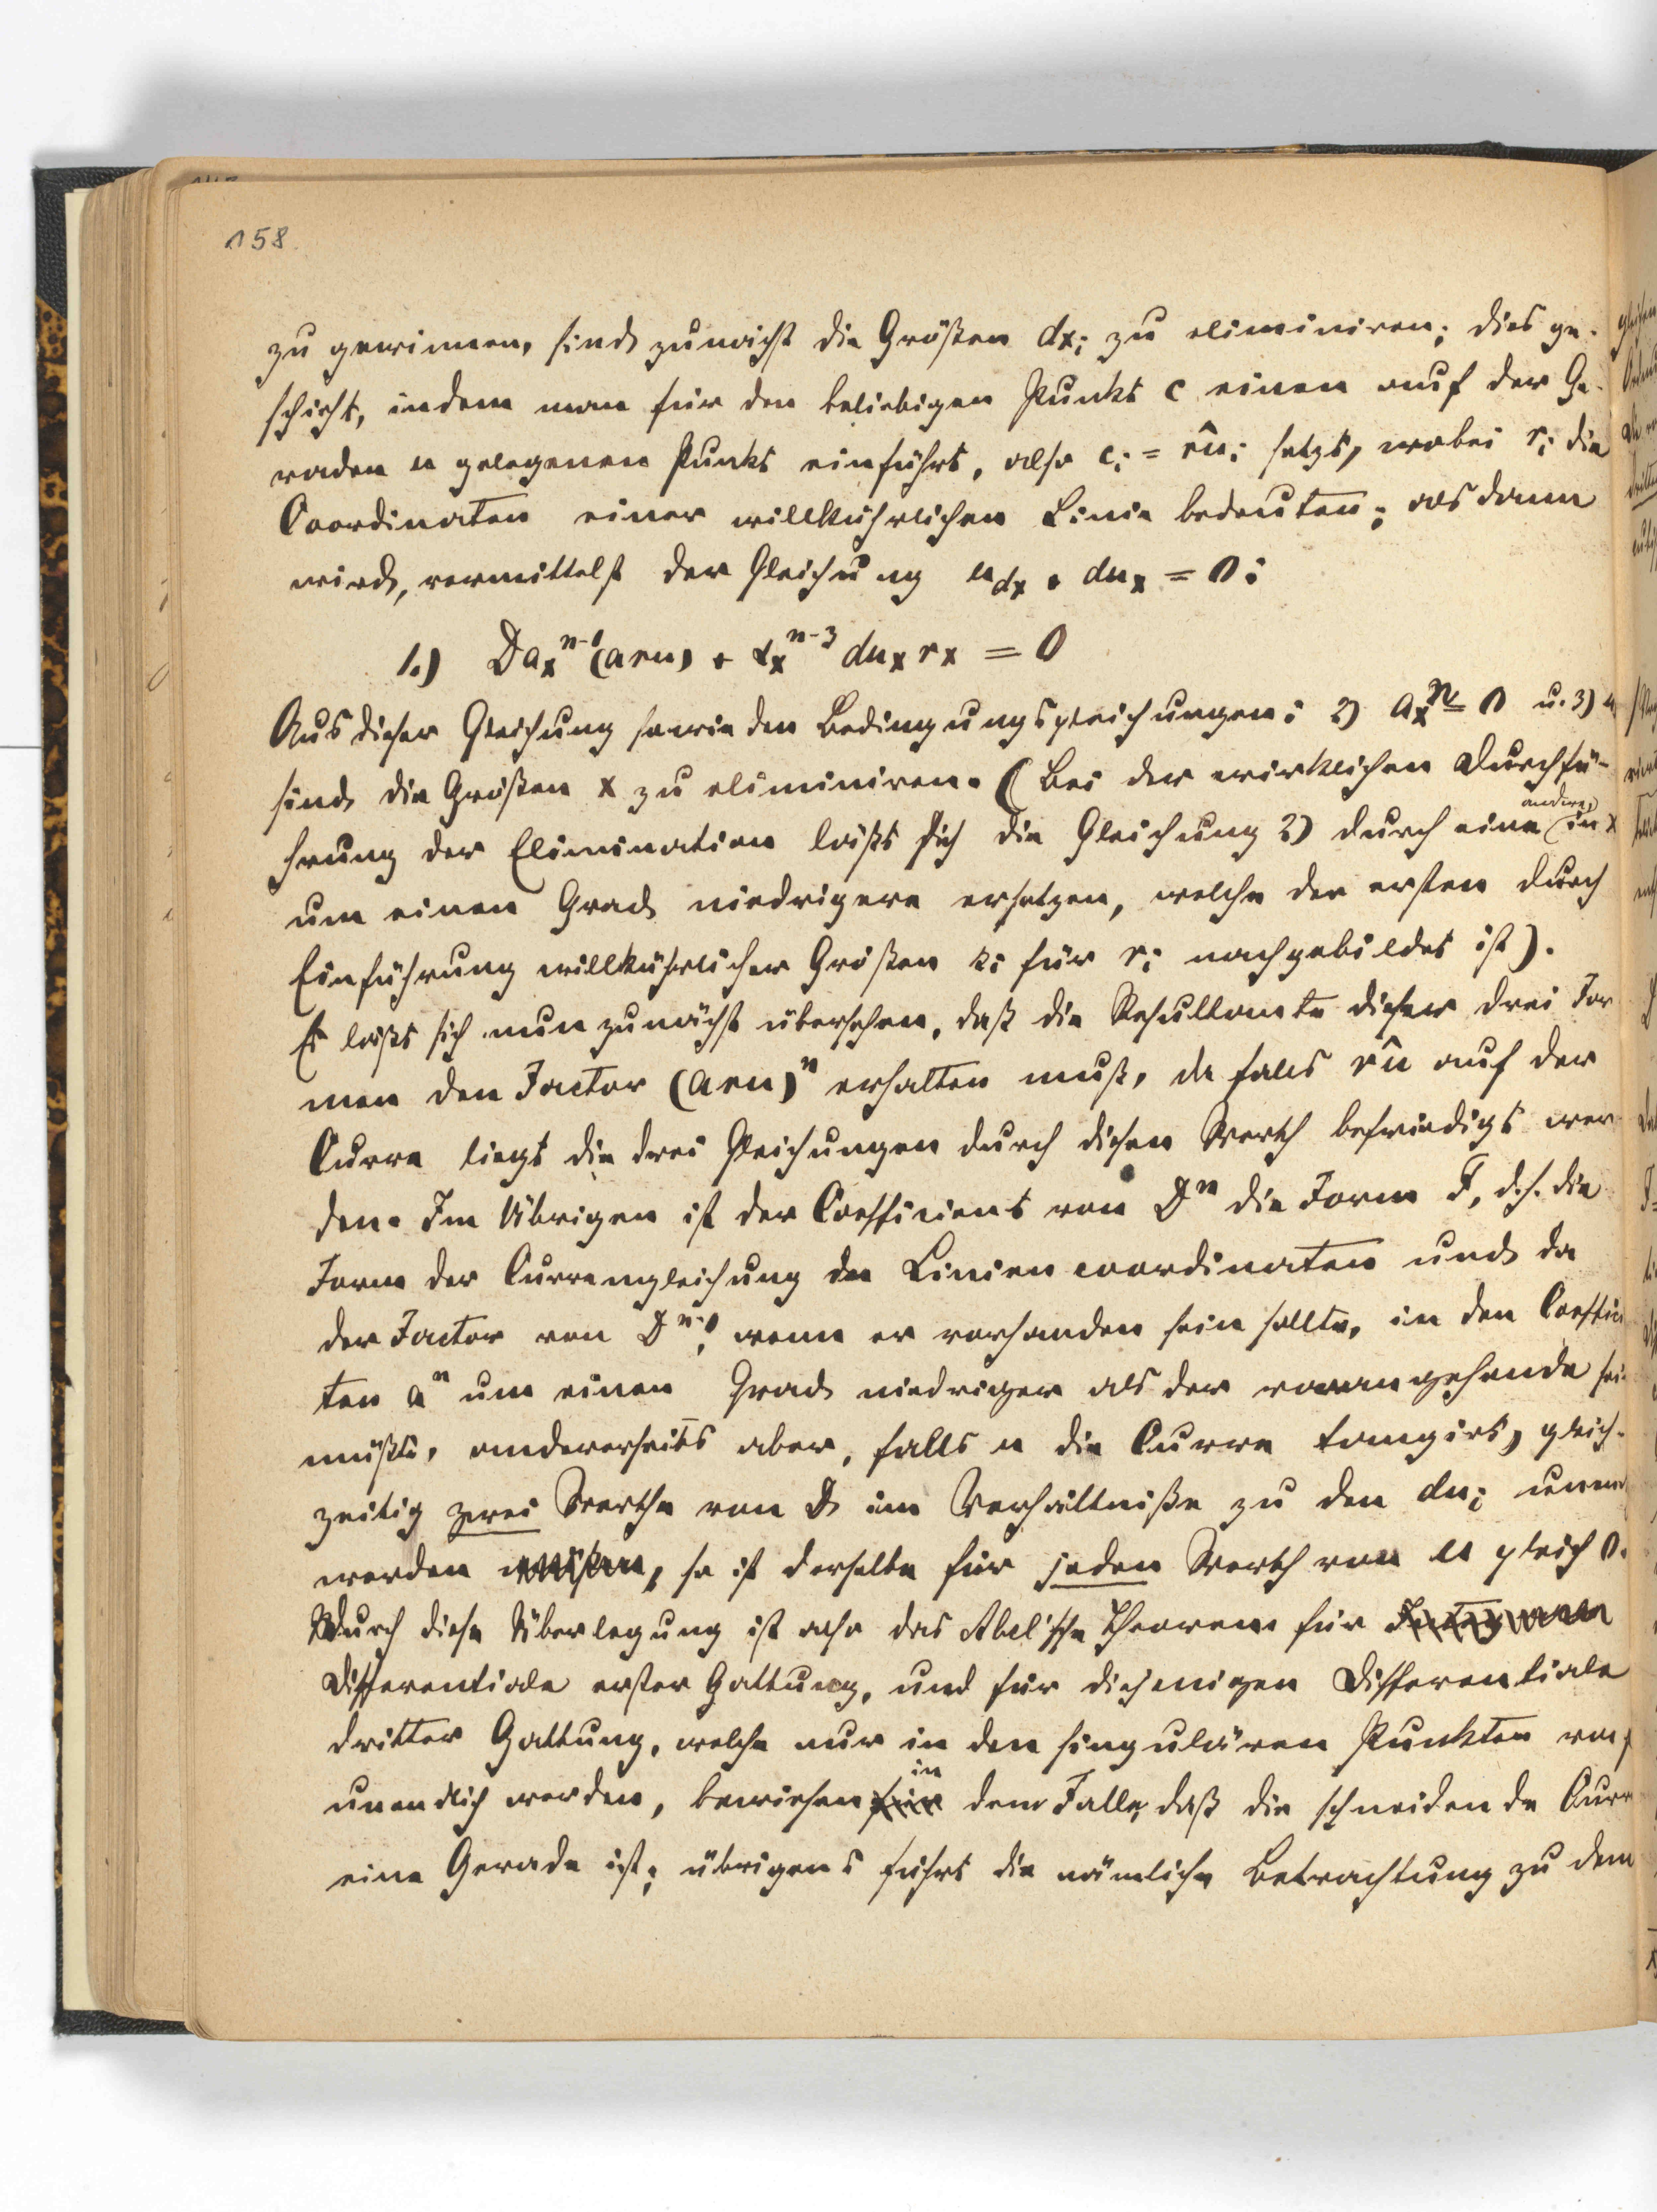 158.
zu gewinnen, sind zunächst die Größen dxᵢ zu eliminiren; dies ge-
schieht, indem man für den beliebigen Punkt c einen auf der Ge-
raden u gelegenen Punkt einführt, also cᵢ = r͡uᵢ setzt, wobei rᵢ die
Coordinaten einer willkührlichen Linie bedeuten; als dann
wird, vermittelst der Gleichung u_dx + du_x = 0:
1.) Da_x^{n-1}(aru) + α_x^{n-3} du_x r_x = 0
Aus dieser Gleichung sowie den Bedingungsgleichungen: 2) a_x^n = 0 u. 3)
sind die Größen x zu eliminiren. (Bei der wirklichen Durchfü-
hrung der Elimination läßt sich die Gleichung 2) durch eine andere, in x
um einen Grad niedrigere ersetzen, welche der ersten durch
Einführung willkührlicher Größen sᵢ für rᵢ nachgebildet ist).
Es läßt sich nun zunächst übersehen, daß die Resultante dieser drei For
men den Factor (aru)^n erhalten muß, da falls r͡u auf der
Curve liegt die drei Gleichungen durch diesen Werth befriedigt wer
den. Im Übrigen ist der Coefficient von D^n die Form F, d.h. die
Form der Curvengleichung in Liniencoordinaten und da
der Factor von D^{n-1}, wenn er vorhanden sein sollte, in den Coeffici
ten a^n um einen Grad niedriger als der vorangehende sei
müßte, andererseits aber, falls u die Curve tangirt, gleich-
zeitig zwei Werthe von D im Verhältniße zu den duᵢ unend
werden müßen, so ist derselbe für jeden Werth von u gleich 0.
Durch diese Überlegung ist also das Abel'sche Theorem für
Differentiale erster Gattung, und für diejenigen Differentiale
dritter Gattung, welche nur in den singulären Punkten von f
unendlich werden, bewiesen für in dem Falle, daß die schneidende Curv
eine Gerade ist; übrigens führt die nämliche Betrachtung zu dem